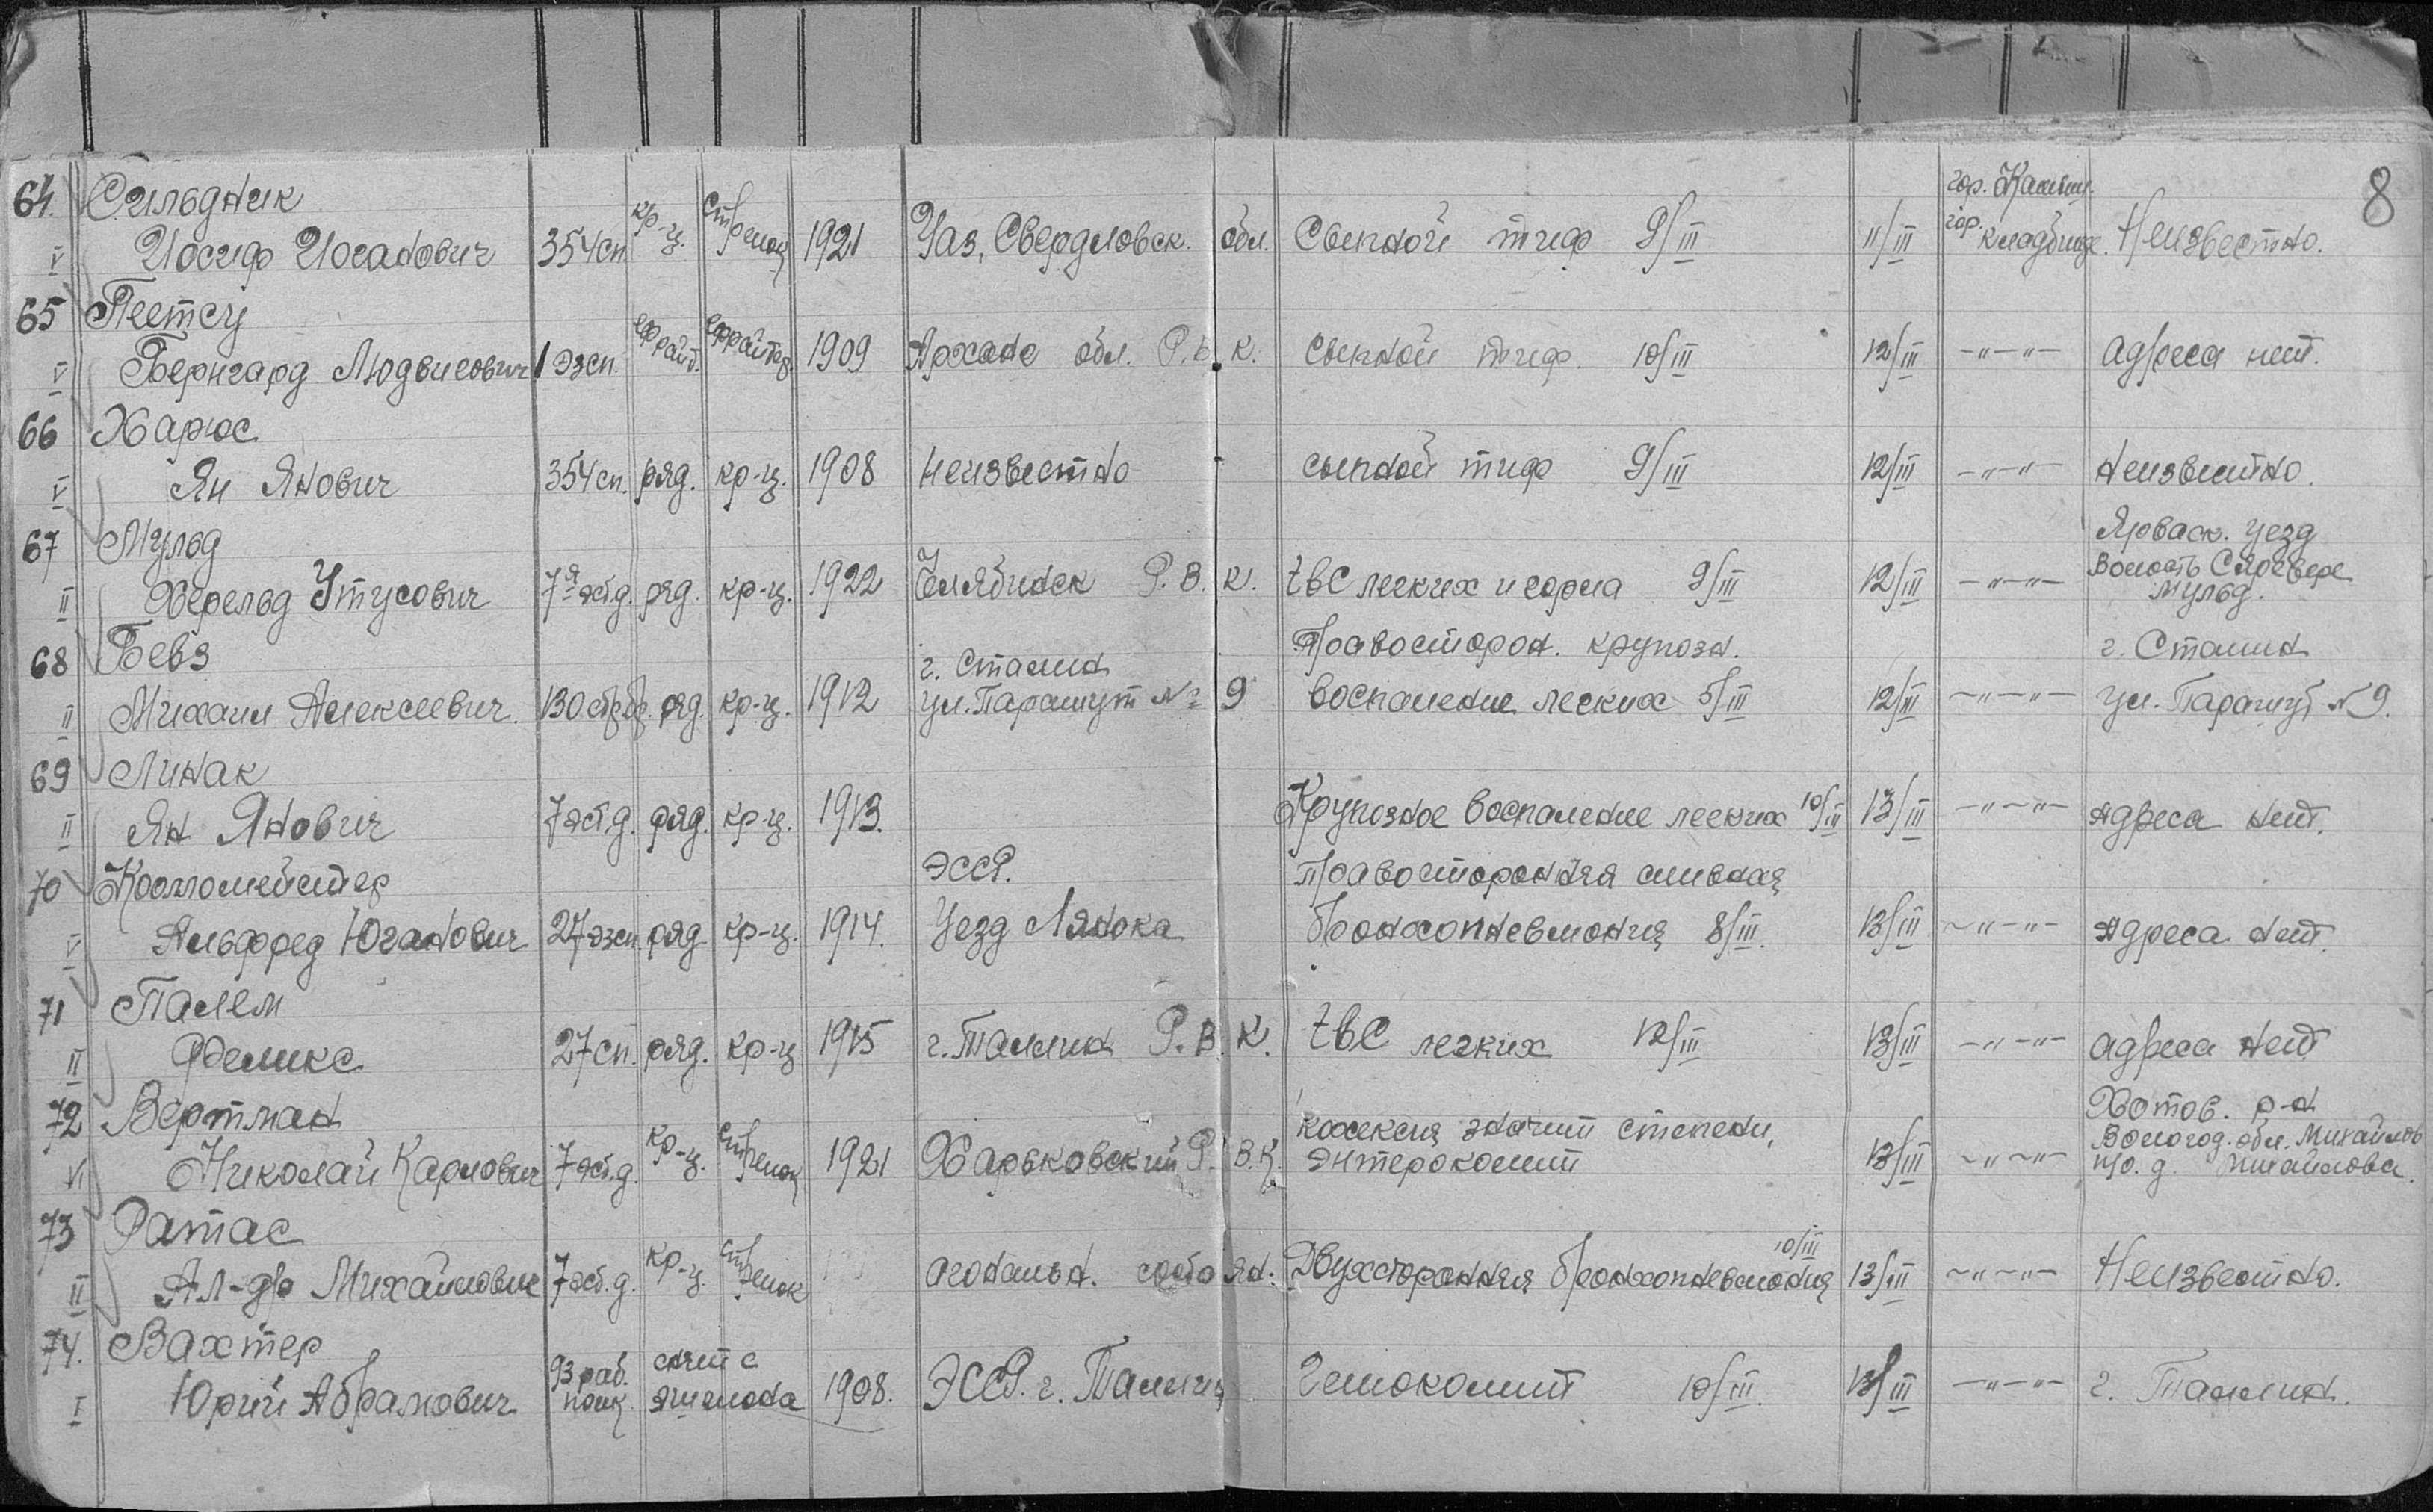 8
64. Сильдник
гор. Калыш.
V Иосиф Иоганович 354 сп. кр-ц. стрелок 1921 Уаз, Свердловск. обл. Сыпной тиф 9/III 11/III гор. кладбище. Неизвестно.
65 Пеетсу
V Бернгард Людвигович 1 эзсп. ефрайт. ефрайтор. 1909 Арханг обл. Р.В.К. сыпной тиф. 10/III 12/III —"—"— адреса нет.
66 Харюс
V Ян Янович 354 сп. ряд. кр-ц. 1908 Неизвестно сыпной тиф 9/III 12/III —"—"— Неизвестно.
67 Мульд
Ярваск. уезд
II Херельд Утусович 7я эст.д. ряд. кр-ц. 1922 Челябинск Р.В.К. tbc легких и горла 9/III 12/III —"—"— Волость Сяревере
Мульд.
68 Бевз
г. Сталин Правосторон. крупозн. г. Сталин
II Михаил Алексеевич. 130 стр.бр. ряд. кр-ц. 1912 ул. Парашут № 9 воспаление легких 5/III 12/III —"—"— ул. Парашут № 9.
69 Линак
II Ян Янович 7 эст.д. ряд. кр-ц. 1913. Крупозное воспаление легких 10/III 13/III —"—"— Адреса нет.
70
ЭССР. Правосторонняя сливная
V Альфред Юганович 27 эзсп. ряд кр-ц. 1914. Уезд Лянока бронхопневмония 8/III. 13/III —"—"— Адреса нет.
71 Палем
II Феликс 27 сп. ряд. кр-ц 1915 г. Таллин Р.В.К. tbc легких 12/III 13/III —"—"— адреса нет
72 Вертман
кахексия значит степени, Хотов. р-н
VI Николай Карлович 7 эст.д. кр-ц. стрелок 1921 Харьковский Р.В.К. энтероколит 13/III —"—"— Вологод. обл. Михайлов
п/о. д. Михайлова.
73 Ратас
II Ал-др Михайлович 7 эст.д. кр-ц. стрелок агональн. состоян. Двухсторонняя бронхопневмония 10/III 13/III —"—"— Неизвестно.
74. Вахтер
I Юрий Абрамович 93 раб. снят с
эшелона 1908. ЭССР. г. Таллин Гемоколит 10/III. 13/III —"—"— г. Таллин.